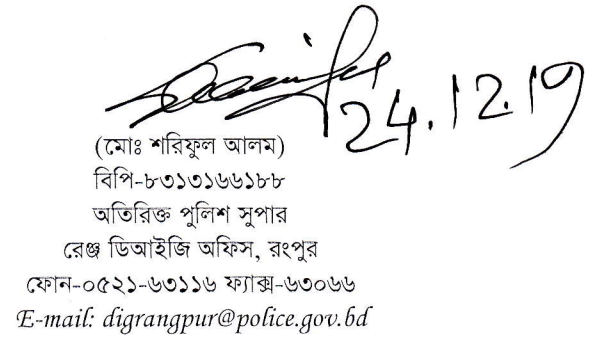 24.12.19
(মোঃ শরিফুল আলম)
বিপি-৮৩১৩১৬৬১৮৮
অতিরিক্ত পুলিশ সুপার
রেঞ্জ ডিআইজি অফিস, রংপুর
ফোন-০৫২১-৬৩১১৬ ফ্যাক্স-৬৩০৬৬
E-mail: digrangpur@police.gov.bd